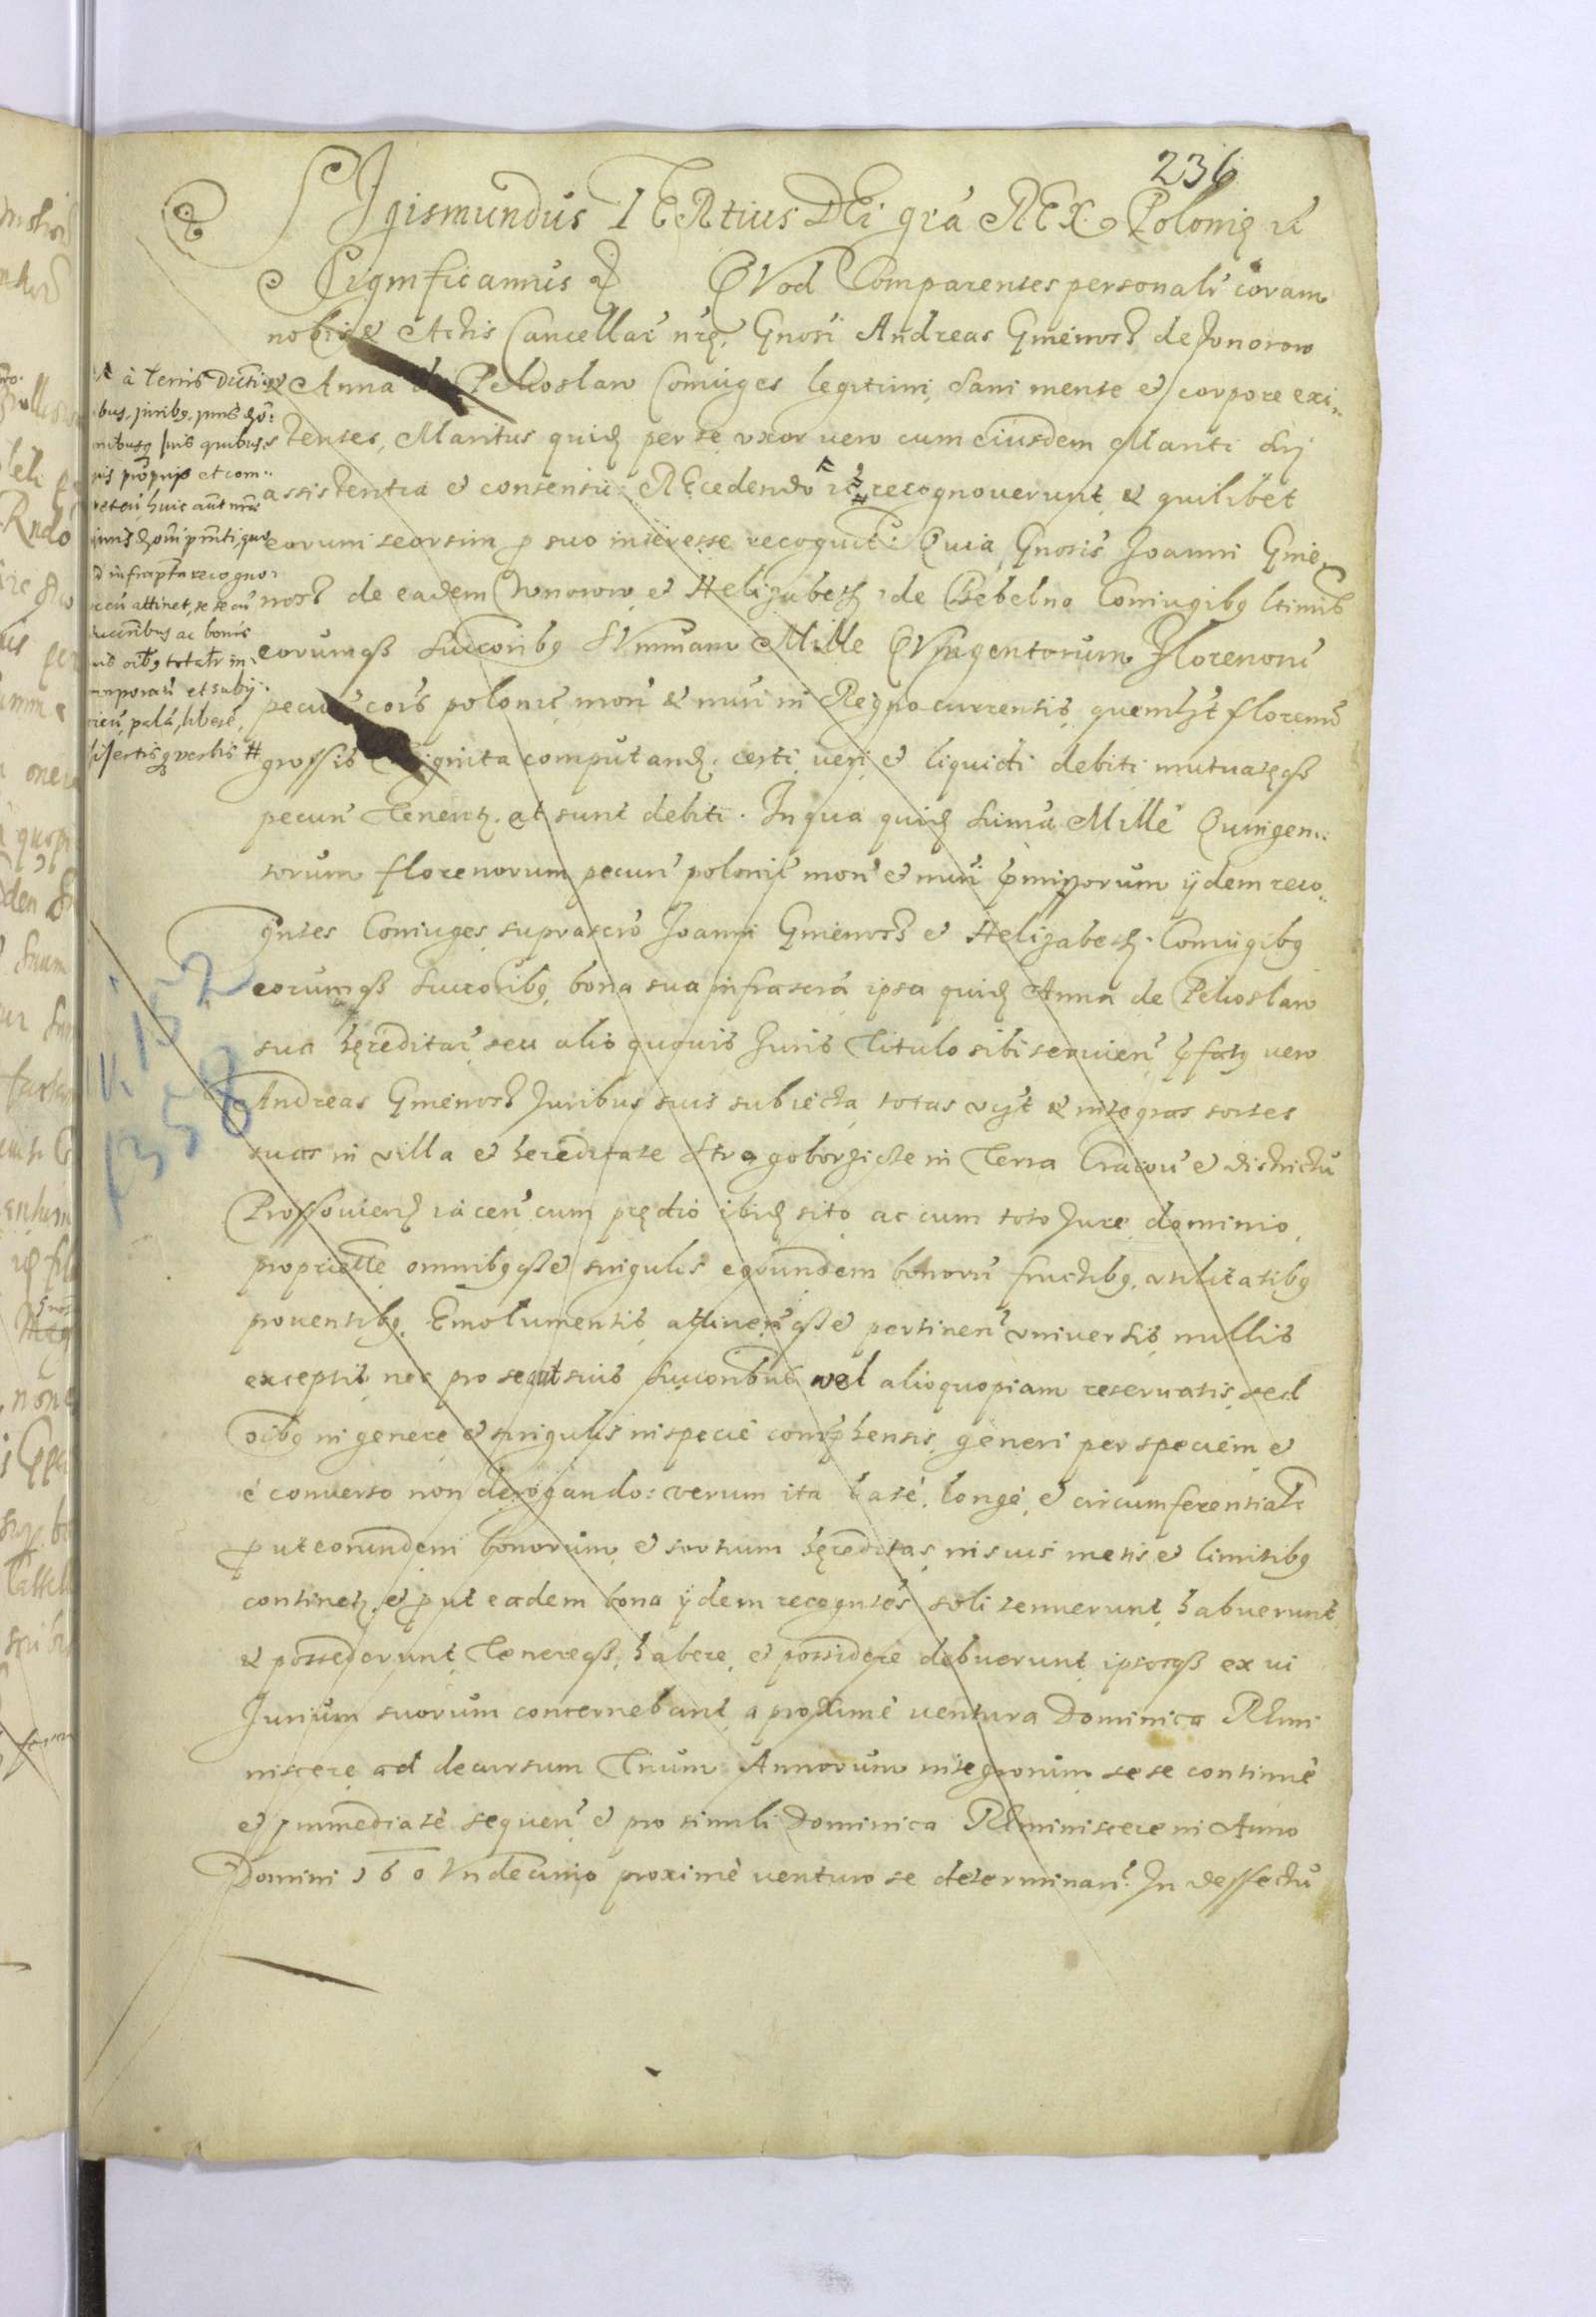 236
Sigismundus TERtius DEi gra REX Polonię
Significamus QVod Comparentes personalr coram
nobis et Actis Cancellar nrę, Gnosi Andreas Gmenosz de Jonorow
et Anna de Pelioslaw Coniuges legitimi, sani mente et corpore exi„
stentes, Maritus quid per se, uxor uero cum eiusdem Mariti sui
assistentia et consensu: REcedendo recognouerunt, et quilibet
eorum seorsim p suo interesse recognit: Quia Gnosis Joanni Gme„
nosz de eadem Chonorow, et Helizabeth, de Bebelno Coniugibq ltimis
eorumqz succoribq SVmmam Mille QVingentorum Florenoru
pecun cois polonic mon et nuri in Regno currentis, quemlzt florenu
grossis triginta computand. certi, ueri, et liquidi debiti mutuatęqz
pecun Tenentr. at sunt debiti. In qua quid suma Mille Quingen„
torum florenorum pecun polonic mon et nuri pmissorum ijdem reco„
gntes Coniuges, suprascro Joanni Gmenosz et Helizabeth. Coniugibq
eorumqz succoribq, bona sua infrascra ipsa quid Anna de Pelioslaw
sua hęreditar seu alio quouis Juris Titulo sibi seruien, pfatq uero
Andreas Gmenosz Juribus suis subiecta, totas uzt et integras sortes
suas in villa et hereditate Stragoborzicze in Terra Cracou et districtu
Prossouien iacen cum prędio ibid sito, ac cum toto Jure, dominio,
propriette omnibqqz et singulis eorundem bonoru fructibq, utilitatibq
prouentibq, Emolumentis, attinenqz et pertinen vniuersis, nullis
exceptis, nec pro se aut suis succoribus vel alioquopiam reseruatis, sed
oibq in genere, et singulis in specie comphensis, generi per speciem, et
é conuerso non derogando: verum ita late, longé, et circumferentialr
put eorundem bonorum, et sortium hęreditas, in suis metis, et limitibq
continetr, et put eadem bona ijdem recogntes soli tenuerunt, habuerunt,
et possederunt, Tenereqz, habere, et possidere debuerunt, ipsosqz ex ui
Jurium suorum concernebant, a proxime uentura Dominica REmi
niscere, ad decursum Trium Annorum integrorum se se continué
et immediaté sequen et pro simili Dominica REminiscere in Anno
Domini 160 Vndecimo proximé uenturo se determinan. In deffectu
à Terris Dicti„
bus, juribq,
suis quibus„
uis proprijs et com„
peten, huic aut
quo
ad infrapta recogno
attinet, se se cu
succribus ac bonis
suis oibq totalr in„
corporan et subij„
cien, palá, liberé,
disertisq verbis #
V. 152
1358